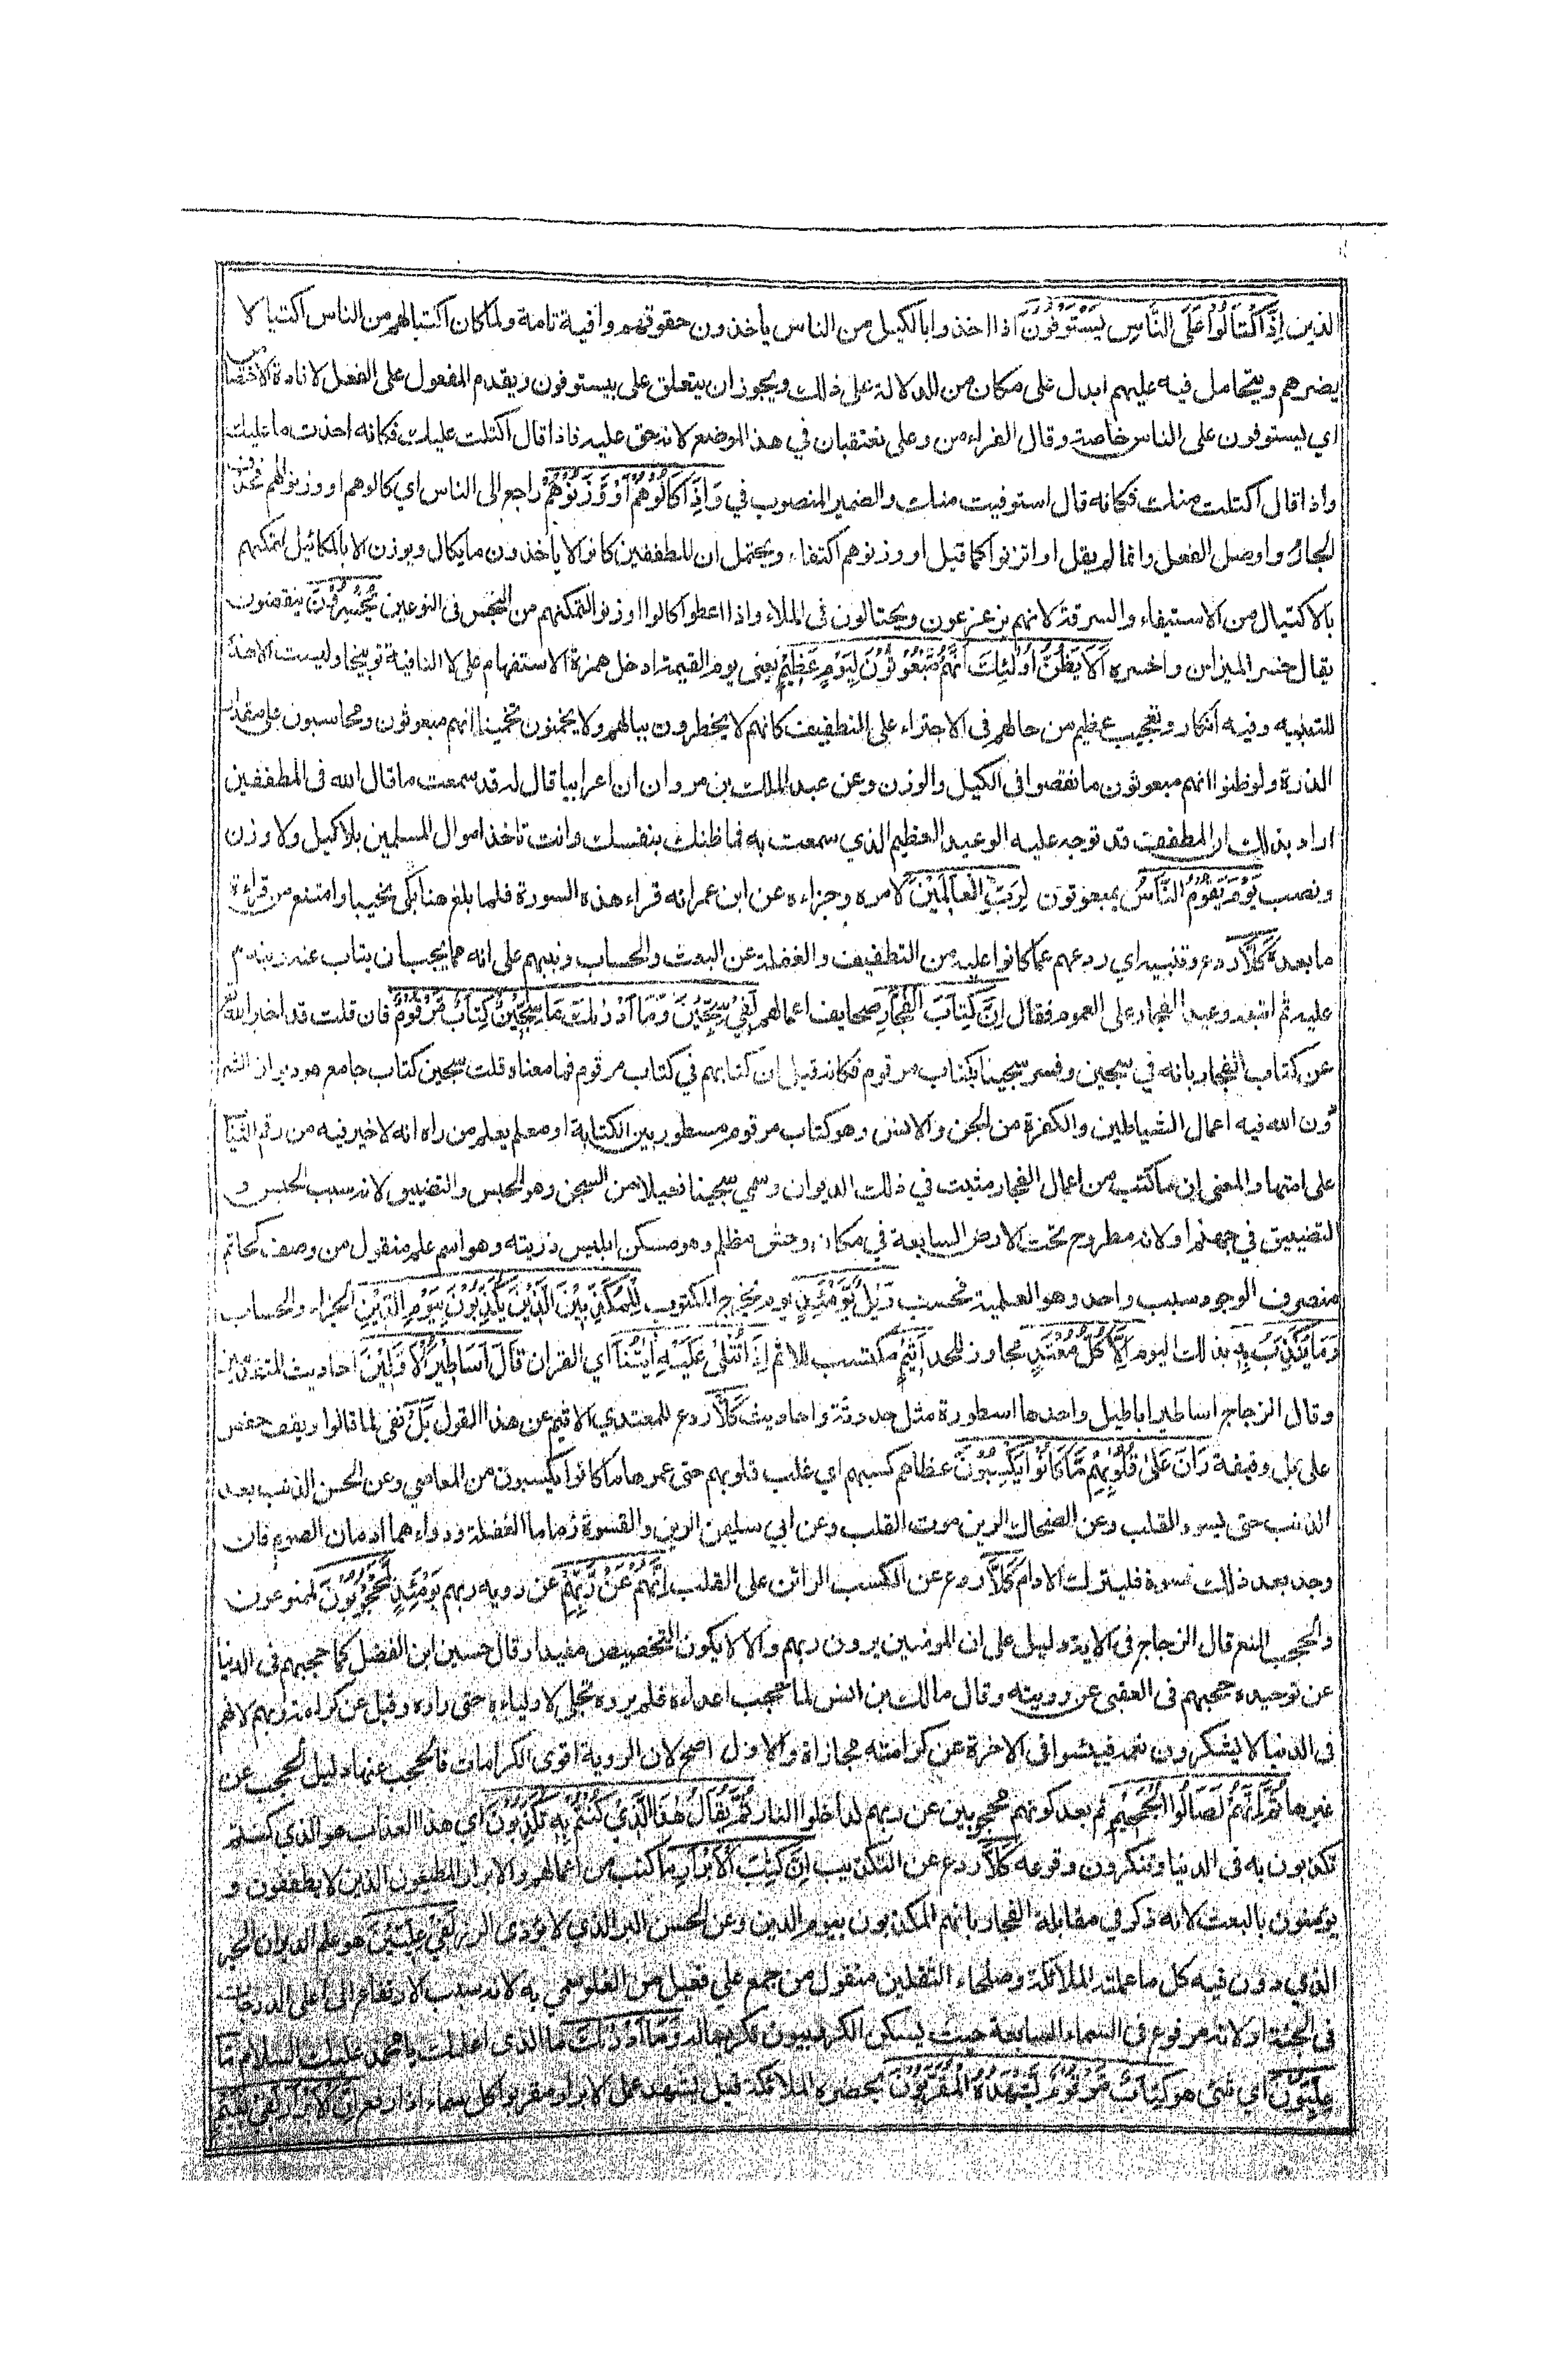 الذين اِذَا اكْتَالُوْا عَلَى النَّاسِ يَسْتَوْفُوْنَ اذا اخذوا بالكيل من الناس يأخذون حقوقهم وافية تامة ولما كان اكتيالهم من الناس اكتيالا
يضرهم ويتحامل فيه عليهم ابدل على مكان من للدلالة على ذلك ويجوز ان يتعلق على بيستوفون ويقدم المفعول على الفعل لافادة الاختصاص
اي يستوفون على الناس خاصة وقال الفراء من وعلى تعتقبان في هذا الموضع لانه حق عليه فاذا قال اكتلت عليك فكانه اخذت ما عليك
واذا قال اكتلت منك فكانه قال استوفيت منك والضمير المنصوب في وَاِذَا كَالُوْهُمْ اَوْ وَّزَنُوْهُمْ راجع الى الناس اي كالوا لهم او وزنوا لهم فحذف
الجار واوصل الفعل وانما لم يقل او اتزنوا كما قيل او وزنوهم اكتفاء ويحتمل ان المطففين كانوا لا يأخذون ما يكال ويوزن الا بالمكائيل لتمكنهم
بالاكتيال من الاستيفاء والسرقة لانهم يزعزعون ويحتالون في الملاء واذا اعطوا كالوا او وزنوا لتمكنهم من البخس في النوعين يُخْسِرُوْنَ ينقصون
يقال خسر الميزان واخسره اَلَا يَظُنُّ اُولٰئِكَ اَنَّهُمْ مَّبْعُوْثُوْنَ لِيَوْمٍ عَظِيْمٍ يعني يوم القيمة ادخل همزة الاستفهام على لا النافية توبيخا وليست الا هذه
للتنبيه وفيه انكار وتعجيب عظيم من حالهم في الاجتراء على التطفيف كانهم لا يخطرون ببالهم ولا يخمنون تخمينا انهم مبعوثون ومحاسبون على مقدار
الذرة ولو ظنوا انهم مبعوثون ما نقصوا في الكيل والوزن وعن عبد الملك بن مروان ان اعرابيا قال له قد سمعت ما قال الله في المطففين
اراد بذلك ان المطفف قد توجه عليه الوعيد العظيم الذي سمعت به فما ظنك بنفسك وانت تاخذ اموال المسلمين بلا كيل ولا وزن
ونصب يَوْمَ يَقُوْمُ النَّاسُ بمبعوثون لِرَبِّ الْعَالَمِيْنَ لامره وجزاءه عن ابن عمر انه قراء هذه السورة فلما بلغ هنا بكى نحيبا وامتنع من قراءة
ما بعده كَلَّا ردع وتنبيه اي ردعهم عما كانوا عليه من التطفيف والغفلة عن البعث والحساب ونبههم على انه مما يجب ان يتاب عنه ويندم
عليه ثم اتبعه وعيد الفجار على العموم فقال اِنَّ كِتَابَ الْفُجَّارِ صحايف اعمالهم لَفِيْ سِجِّيْنٍ وَّمَا اَدْرٰىكَ مَا سِجِّيْنٌ كِتَابٌ مَّرْقُوْمٌ فان قلت قد اخبر الله
عن كتاب الفجار بانه في سجين وفسر سجينا بكتاب مرقوم فكانه قيل ان كتابهم في كتاب مرقوم فما معناه قلت سجين كتاب جامع هو ديوان الشر
دون الله فيه اعمال الشياطين والكفرة من الجن والانس وهو كتاب مرقوم مسطور بين الكتابة او معلم يعلم من راه انه لا خير فيه من رقم الثياب
على امتها والمعنى ان ما كتب من اعمال الفجار مثبت في ذلك الديوان وسمي سجينا فعيلا من السجن وهو الحبس والتضييق لانه سبب الحبس و
التضييق في جهنم او لانه مطروح تحت الارض السابعة في مكان وحش مظلم وهو مسكن ابليس وذريته وهو اسم علم منقول من وصف كحاتم
منصرف الوجود سبب واحد وهو العلمية فحسب وَيْلٌ يَّوْمَئِذٍ يوم يخرج المكتوب لِّلْمُكَذِّبِيْنَ الَّذِيْنَ يُكَذِّبُوْنَ بِيَوْمِ الدِّيْنِ الجزاء والحساب
وَمَا يُكَذِّبُ بِهٖ بذلك اليوم اِلَّا كُلُّ مُعْتَدٍ مجاوز للحد اَثِيْمٍ مكتسب للاثم اِذَا تُتْلٰى عَلَيْهِ اٰيٰتُنَا اي القران قَالَ اَسَاطِيْرُ الْاَوَّلِيْنَ احاديث المتقدمين
وقال الزجاج اساطير اباطيل واحدها اسطورة مثل احدوثة واحاديث كَلَّا ردع للمعتدي الاثيم عن هذا القول بَلْ نفى لما قالوا ويقف حفص
على بل وقيفة رَانَ عَلٰى قُلُوْبِهِمْ مَّا كَانُوْا يَكْسِبُوْنَ غطاهم كسبهم اي غلب قلوبهم حتى غمرها ما كانوا يكسبون من المعاصي وعن الحسن الذنب بعد
الذنب حتى يسود القلب وعن الضحاك الرين موت القلب وعن ابي سليمن الرين والقسوة زماما الغفلة ودواءهما ادمان الصوم فان
وجد بعد ذلك قسوة فليترك الادام كَلَّا ردع عن الكسب الرائن على القلب اِنَّهُمْ عَنْ رَّبِّهِمْ عن رويه ربهم يَوْمَئِذٍ لَّمَحْجُوْبُوْنَ لممنوعون
والحجب المنع قال الزجاج في الاية دليل على ان المومنين يرون ربهم والا لا يكون التخصيص مفيدا وقال حسين ابن الفضل كما حجبهم في الدنيا
عن توحيده حجبهم في العقبى عن رويته وقال مالك بن انس لما حجب اعداءه فلم يروه تجلى لاولياءه حتى راوه وقيل عن كرامة ربهم لانهم
في الدنيا لا يشكرون نعمه فييئسوا في الاخرة عن كرامته مجازاة والاول اصح لان الروية اقوى الكرامات فالحجب عنها دليل الحجب عن
غيرها ثُمَّ اِنَّهُمْ لَصَالُوا الْجَحِيْمِ ثم بعد كونهم محجوبين عن ربهم لداخلوا النار ثُمَّ يُقَالُ هٰذَا الَّذِيْ كُنْتُمْ بِهٖ تُكَذِّبُوْنَ اي هذا العذاب هو الذي كنتم
تكذبون به في الدنيا وتنكرون وقوعه كَلَّا ردع عن التكذيب اِنَّ كِتٰبَ الْاَبْرَارِ ما كتب من اعمالهم والابرار المطيعون الذين لا يطففون و
يؤمنون بالبعث لانه ذكر في مقابلة الفجار بانهم المكذبون بيوم الدين وعن الحسن البر الذي لا يؤذي الذر لَفِيْ عِلِّيِّيْنَ هو علم لديوان الخير
الذي دون فيه كل ما عملته الملائكة وصلحاء الثقلين منقول من جمع علي فعيل من العلو سمي به لانه سبب الارتفاع الى اعلى الدرجات
في الجنة او لانه مرفوع في السماء السابعة حيث يسكن الكروبيون تكريما له وَمَا اَدْرٰىكَ ما الذي اعلمك يا محمد عليك السلام مَا
عِلِّيُّوْنَ اي شئ هو كِتَابٌ مَّرْقُوْمٌ يَّشْهَدُهُ الْمُقَرَّبُوْنَ يحضره الملائكة قيل يشهد عمل الابرار مقربوا كل سماء اذا رفع اِنَّ الْاَبْرَارَ لَفِيْ نَعِيْمٍ